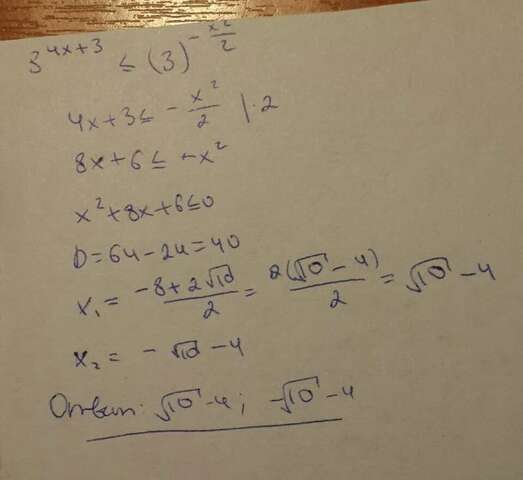 3^{4x+3} ≤ (3)^{-x²/2}
4x+3 ≤ -x²/2 |·2
8x+6 ≤ -x²
x²+8x+6≤0
D=64-24=40
x₁ = (-8+2√10)/2 = 2(√10-4)/2 = √10-4
x₂ = -√10-4
Ответ: √10-4; -√10-4